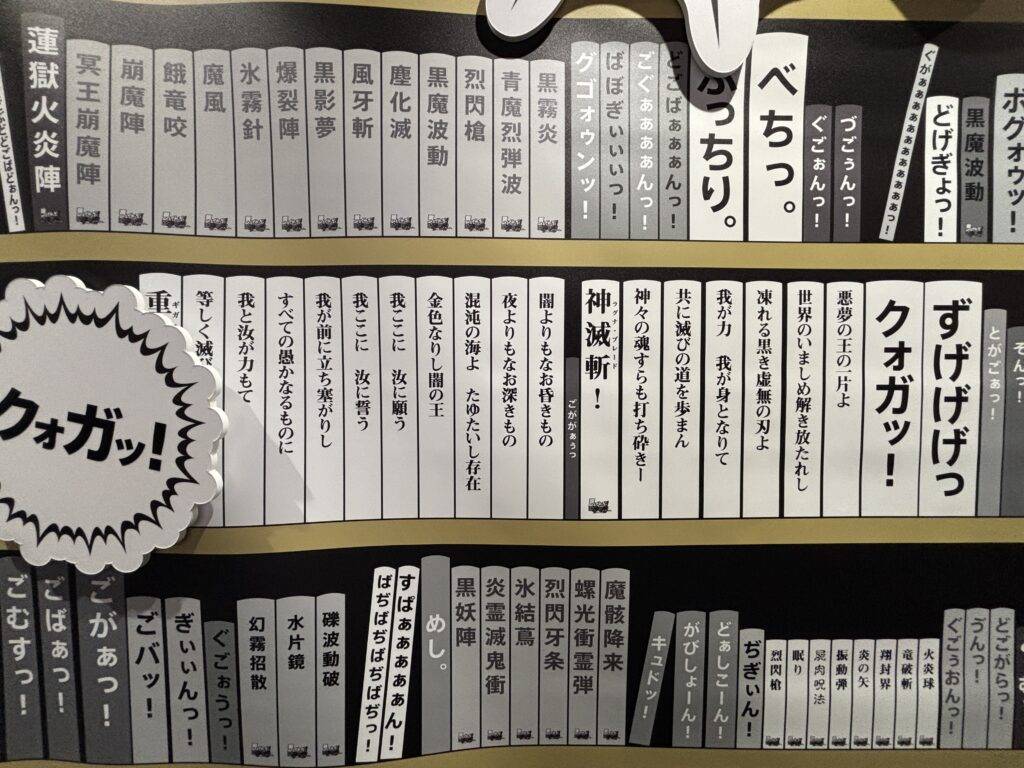 黒魔波動
どげぎょっ！
ぐがぁぁぁぁぁぁぁぁぁぁっ！
づごぅんっ！
ぐごぉんっ！
べちっ。
っちり。
どごばぁぁぁんっ！
ごぐぁぁぁぁんっ！
ばぼぎぃぃぃっ！
グゴォゥンッ！
黒霧炎
青魔烈弾波
烈閃槍
黒魔波動
塵化滅
風牙斬
黒影夢
爆裂陣
氷霧針
魔風
餓竜咬
崩魔陣
冥王崩魔陣
蓮獄火炎陣
とがごぁっ！
ずげげげっ
クォガッ！
悪夢の王の一片よ
世界のいましめ解き放たれし
凍れる黒き虚無の刃よ
我が力　我が身となりて
共に滅びの道を歩まん
神々の魂すらも打ち砕きー
神滅斬！
ラグナ・ブレード
ごががぁぅっ
闇よりもなお昏きもの
夜よりもなお深きもの
混沌の海よ　たゆたいし存在
金色なりし闇の王
我ここに　汝に願う
我ここに　汝に誓う
我が前に立ち塞がりし
すべての愚かなるものに
我と汝が力もて
等しく滅び
重
ギガ
クォガッ！
どごがらっ！
ぐごぅおんっ！
火炎球
竜破斬
翔封界
炎の矢
振動弾
屍肉呪法
眠り
烈閃槍
ぢぎぃん！
どぁしこーん！
がびしょーん！
キュドッ！
魔骸降来
螺光衝霊弾
烈閃牙条
氷結蔦
炎霊滅鬼衝
黒妖陣
めし。
すぱぁぁぁぁぁん！
ばぢばぢばぢばぢっ！
礫波動破
水片鏡
幻霧招散
ぐごぉうっ！
ぎぃぃんっ！
ごバッ！
ごがぁっ！
ごばぁっ！
ごむすっ！